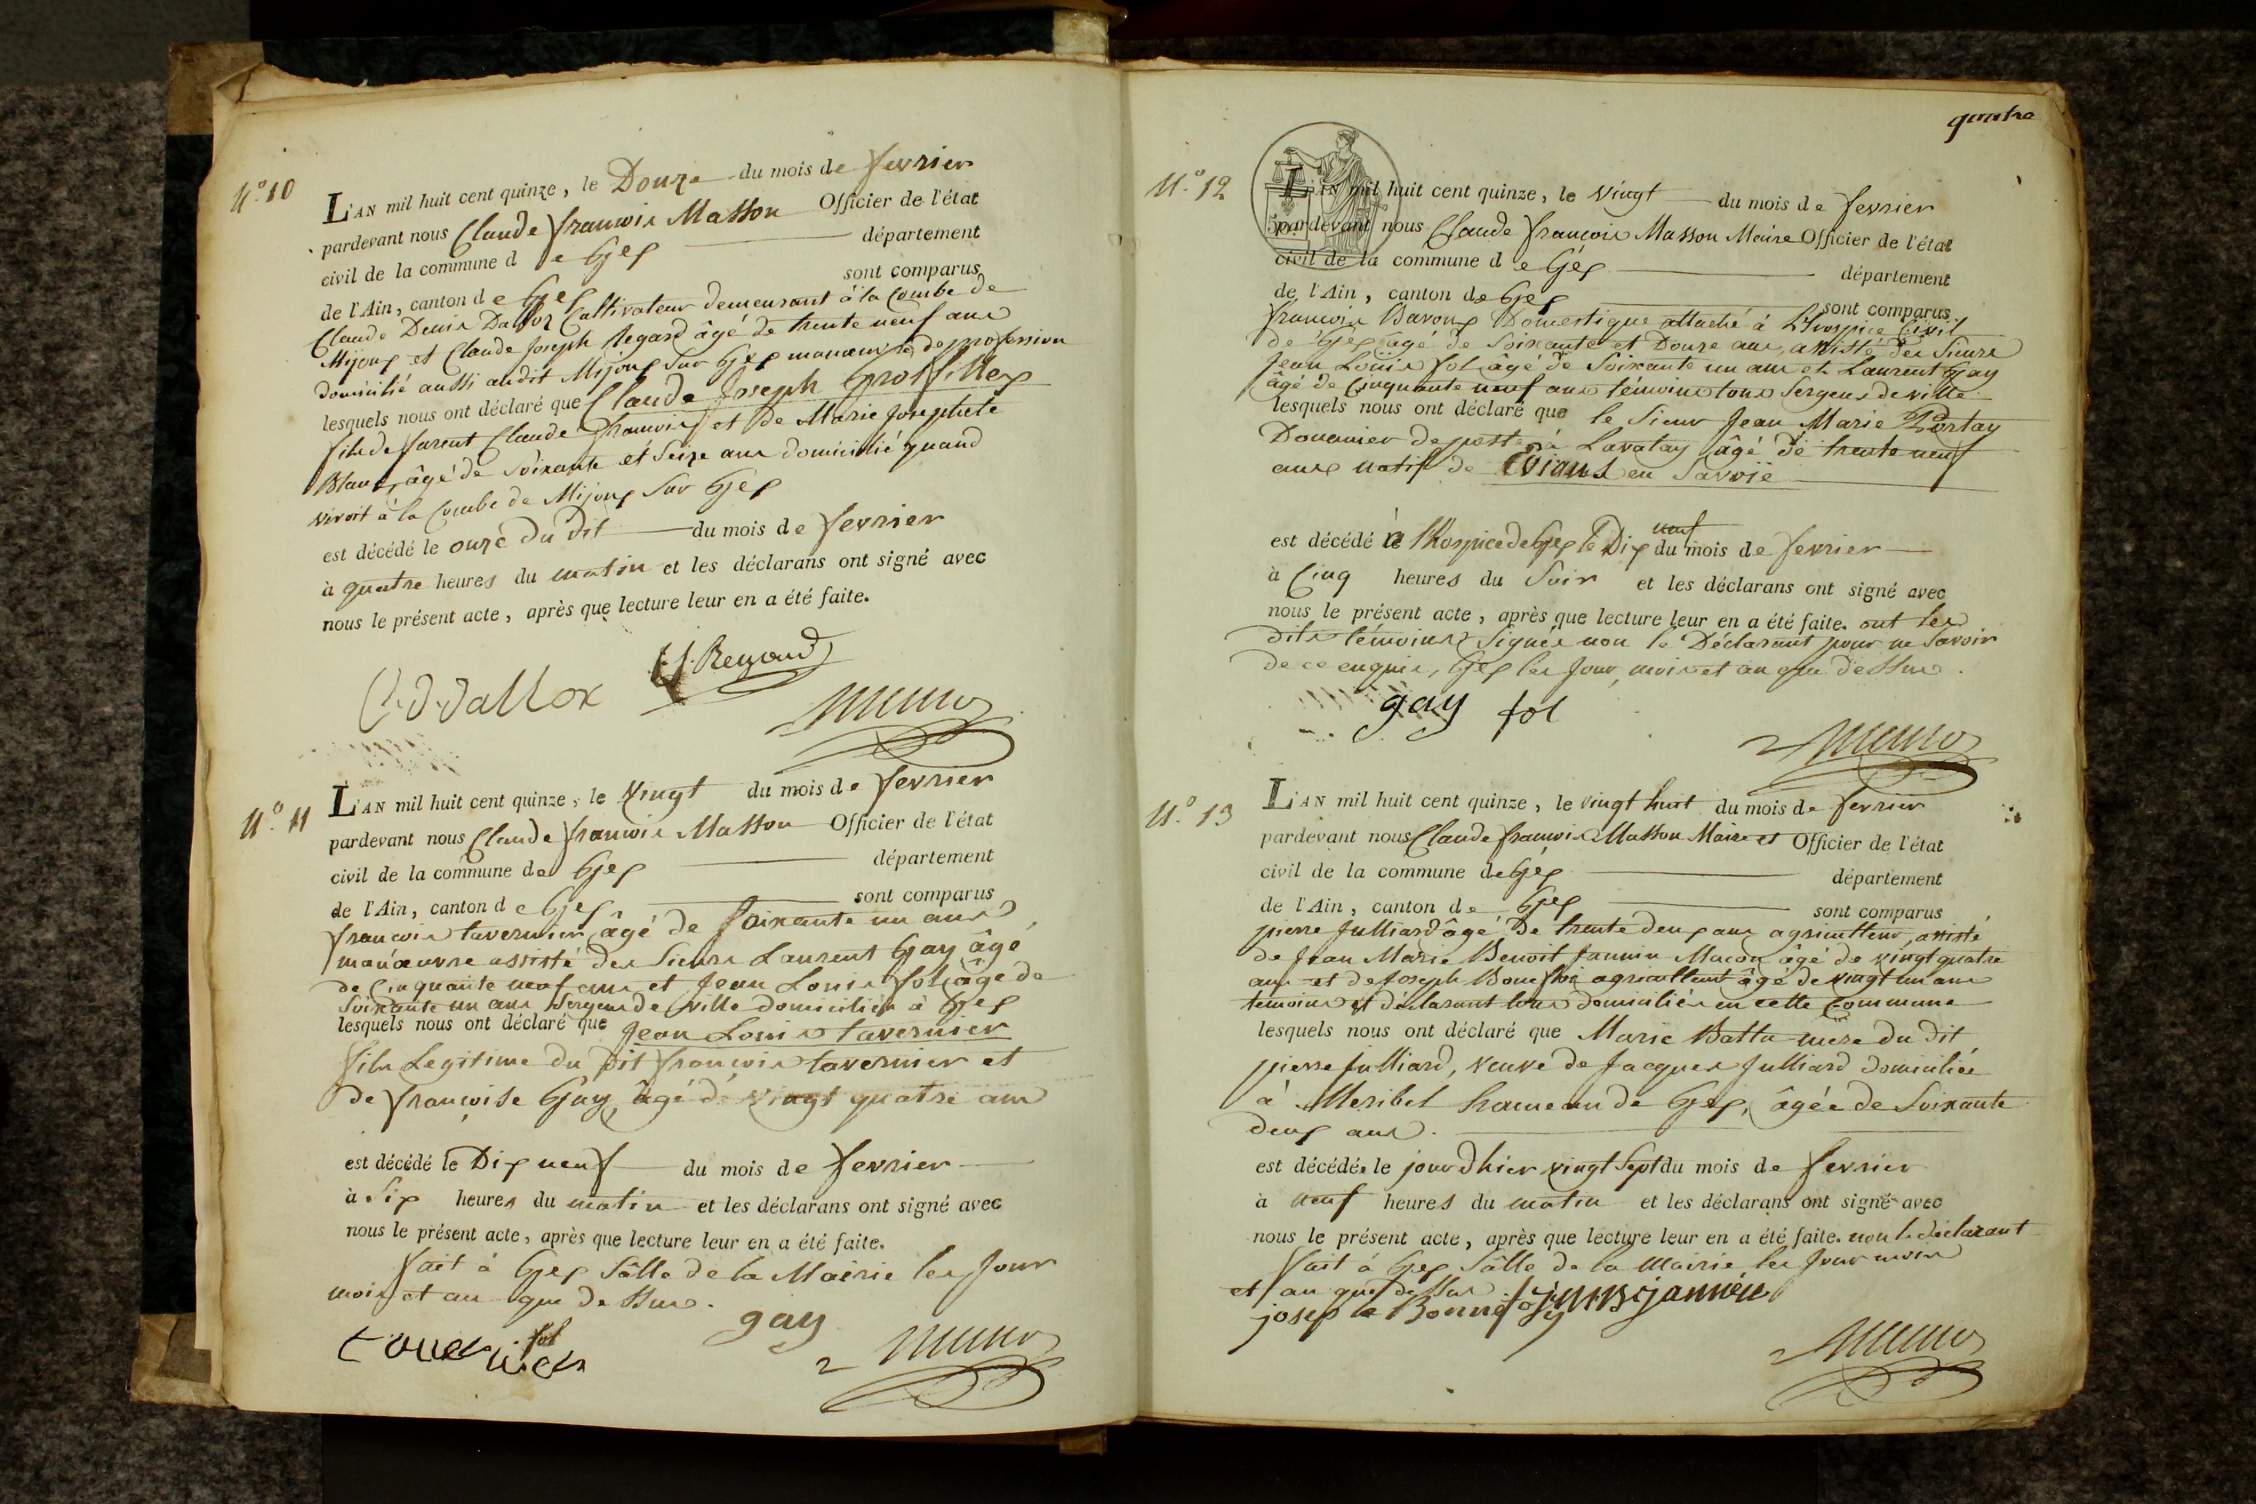 N.º 10
L'AN mil huit cent quinze, le Douze du mois de fevrier
pardevant nous Claude francois Masson Officier de l'état
civil de la commune d e Gex département
de l'Ain, canton d e Gex sont comparus
Claude Denis Dalloz Cultivateur demeurant à la Combe de
Mijoux et Claude Joseph Regard âgé de trente neuf ans
domicilié aussi audit Mijoux sur Gex manœuvre de profession
lesquels nous ont déclaré que Claude Joseph Grosfillex
fils de furent Claude francois et de Marie Josephete
Blanc, âgé de Soixante et Seize ans domicilié quand
vivoit à la Combe de Mijoux sur Gex
est décédé le onze du dit du mois de fevrier
à quatre heures du matin et les déclarans ont signé avec
nous le présent acte, après que lecture leur en a été faite.
C. D. Dallox
N.º 11
L'AN mil huit cent quinze, le Vingt du mois de fevrier
pardevant nous Claude francois Masson Officier de l'état
civil de la commune de Gex département
de l'Ain, canton d e Gex sont comparus
francois tavernier âgé de Soixante un ans
manœuvre assisté des Sieurs Laurent Gay âgé
de Cinquante neuf ans et Jean Louis fol âgé de
Soixante un ans Sergens de ville domiciliés à Gex
lesquels nous ont déclaré que Jean Louis tavernier
fils Legitime du dit francois tavernier et
de françoise Gay, âgé de vingt quatre ans
est décédé le Dix neuf du mois de fevrier
à Six heures du matin et les déclarans ont signé avec
nous le présent acte, après que lecture leur en a été faite.
fait à Gex Sâlle de la Mairie les Jour
mois et an que dessus.
gay
fol
tavernier
quatre
N.º 12
L'AN mil huit cent quinze, le vingt du mois de fevrier
pardevant nous Claude françois Masson Maire Officier de l'état
civil de la commune d e Gex département
de l'Ain, canton de Gex sont comparus
francois Baroux Domestique attaché à L'hospice Civil
de Gex âgé de Soixante et Douze ans, assisté des Sieurs
Jean Louis fol âgé de Soixante un ans et Laurent Gay
âgé de Cinquante neuf ans témoins tous Sergens de ville
lesquels nous ont déclaré que le Sieur Jean Marie Portay
Douanier de poste à Lavatay âgé de trente neuf
ans natif de Evians en Savoie
est décédé à l'Hospice de Gex le Dix neuf du mois de fevrier
à Cinq heures du Soir et les déclarans ont signé avec
nous le présent acte, après que lecture leur en a été faite. ont les
dits témoins Signés non le Déclarant pour ne Savoir
de ce enquis, Gex les Jour, mois et an que dessus.
gay fol
N.º 13
L'AN mil huit cent quinze, le vingt huit du mois de fevrier
pardevant nous Claude francois Masson Maire et Officier de l'état
civil de la commune de Gex département
de l'Ain, canton de Gex sont comparus
pierre Julliard âgé De trente deux ans agriculteur, assisté
de Jean Marie Benoit Jannin Maçon âgé de vingt quatre
ans et de Joseph agriculteur âgé de vingt un ans
temoins et déclarant tous domiciliés en cette Commune
lesquels nous ont déclaré que Marie Batta mere du dit
pierre Julliard, veuve de Jacques Julliard domiciliée
à Meribel hameau de Gex, âgée de Soixante
deux ans.
est décédée le jour d'hier vingt Sept du mois de fevrier
à neuf heures du matin et les déclarans ont signé avec
nous le présent acte, après que lecture leur en a été faite. non le déclarant
fait à Gex Sâlle de la Mairie les Jour mois
et an que dessus